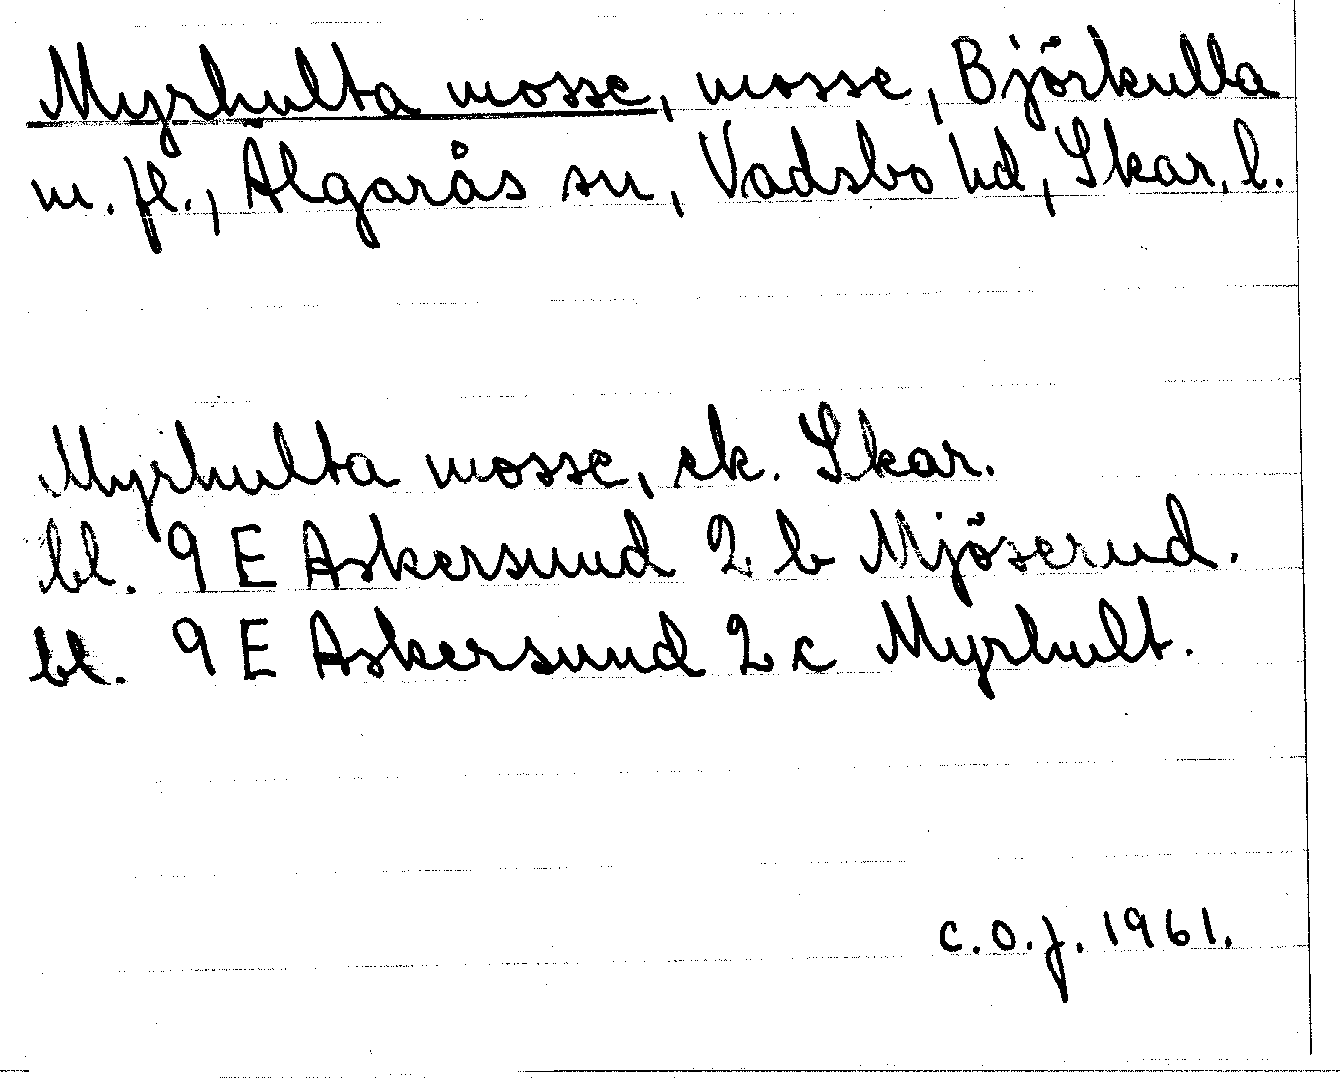 Myrhulta mosse, mosse, Björkulla
m. fl., Älgarås sn, Vadsbo hd, Skar. l.
Myrhulta mosse, ek. Skar.
bl. 9 E Askersund 2 b Mjöserud.
bl. 9 E Askersund 2 c Myrhult.
C.O.J. 1961.